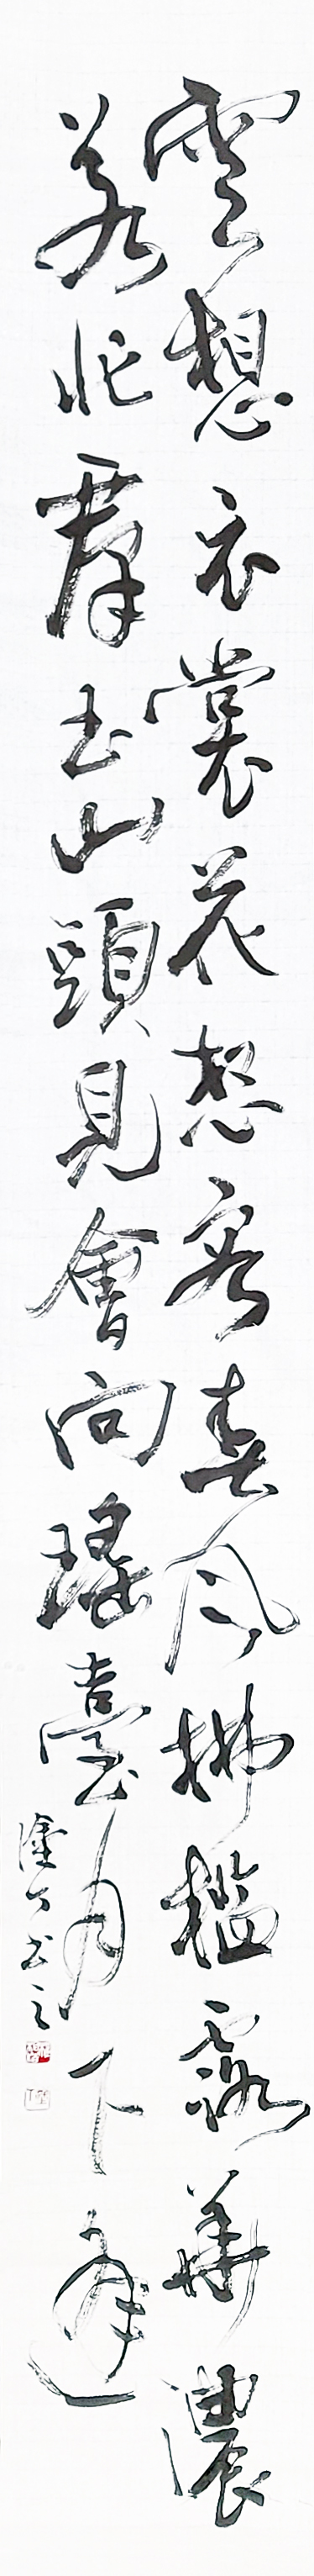 雲想衣裳花想容春風拂檻露華濃
若非群玉山頭見會向瑤臺月下逢